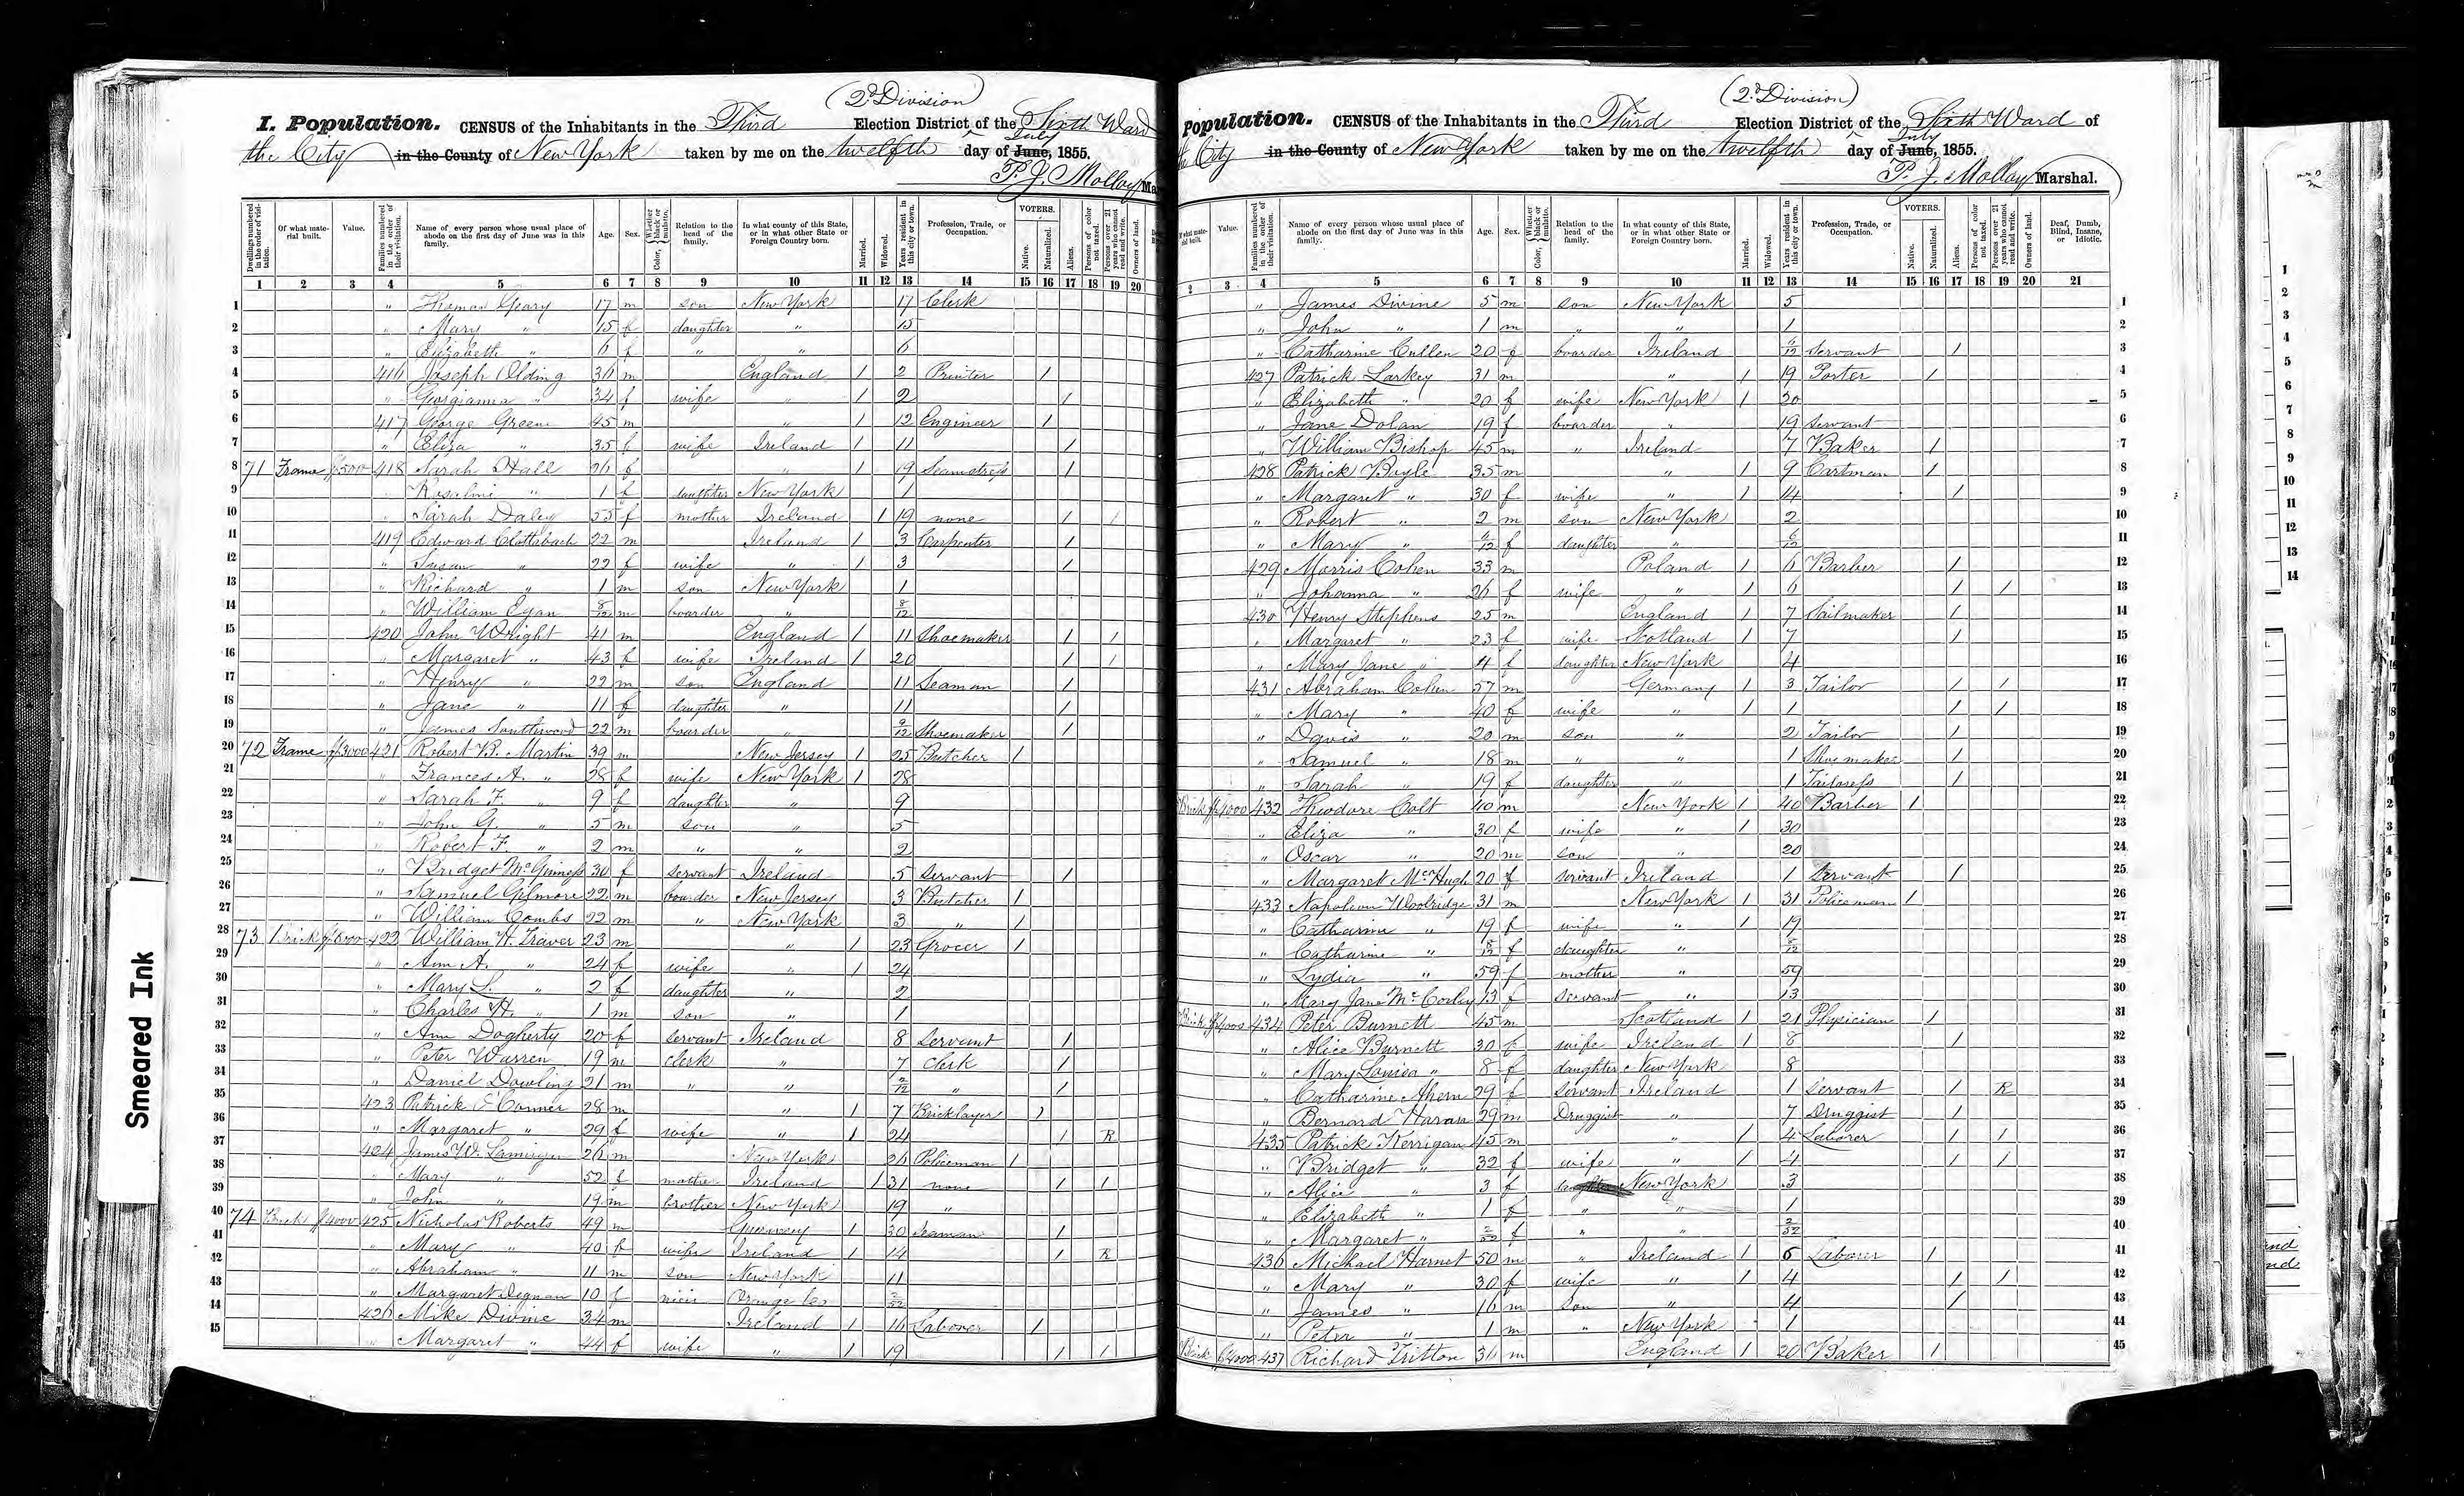 (2d Division)
I. Population. CENSUS of the Inhabitants in the Third Election District of the Sixth Ward
the City in the County of New York taken by me on the twelfth day of June, July 1855.
P. J. Molloy Mar
Dwellings numbered in the order of visitation. Of what material built. Value. Families numbered in the order of their visitation. Name of every person whose usual place of abode on the first day of June was in this family. Age. Sex. Color, Whether black or mulatto. Relation to the head of the family. In what county of this State, or in what other State or Foreign Country born. Married. Widowed. Years resident in this city or town. Profession, Trade, or Occupation. VOTERS. Native. Naturalized. Aliens. Persons of color not taxed. Persons over 21 years who cannot read and write. Owners of land.
1 2 3 4 5 6 7 8 9 10 11 12 13 14 15 16 17 18 19 20
1 " Thomas Geary 17 m son New York 17 Clerk
2 " Mary " 15 f daughter " 15
3 " Elizabeth " 6 f " " 6
4 416 Joseph Olding 36 m England 1 2 Printer 1
5 " Georgianna " 34 f wife " 1 2 1
6 417 George Green 45 m " 1 12 Engineer 1
7 " Eliza " 35 f wife Ireland 1 11 1
8 71 Frame $500 418 Sarah Hall 26 f " 1 19 Seamstress 1
9 " " 1 f daughter New York 1
10 " Sarah Daley 55 f mother Ireland 1 19 none 1 1
11 419 Edward Clottsbach 22 m Ireland 1 3 Carpenter 1
12 " Susan " 22 f wife " 1 3 1
13 " Richard " 1 m son New York 1
14 " William Egan 8/12 m boarder " 8/12
15 420 John Wright 41 m England 1 11 Shoemaker 1 1
16 " Margaret " 43 f wife Ireland 1 20 1 1
17 " Henry " 22 m son England 11 Seaman 1
18 " Jane " 11 f daughter " 11 1
19 " James Southwood 22 m boarder " 9/12 Shoemaker 1
20 72 Frame $3000 421 Robert B. Martin 39 m New Jersey 1 25 Butcher 1
21 " Frances A. " 28 f wife New York 1 28
22 " Sarah F. " 9 f daughter " 9
23 " John G. " 5 m son " 5
24 " Robert F. " 2 m " " 2
25 " Bridget McGuiness 30 f servant Ireland 5 servant 1
26 " Samuel Gilmore 22 m boarder New Jersey 3 Butcher 1
27 " William Combs 22 m " New York 3 " 1
28 73 Brick 422 William H. Traver 23 m " 1 23 Grocer 1
29 " Ann A. " 24 f wife " 1 24
30 " Mary L. " 2 f daughter " 2
31 " Charles H. " 1 m son " 1
32 " Ann Dogherty 20 f servant Ireland 8 Servant 1
33 " Peter Warren 19 m clerk " 7 Clerk 1
34 " Daniel Dowling 21 m " " 2/12 " 1
35 423 Patrick O'Conner 28 m " 1 7 Bricklayer 1
36 " Margaret " 29 f wife " 1 24 1 R
37 424 James W. 26 m New York 26 Policeman 1
38 " Mary " 52 f mother Ireland 1 31 none 1 1
39 " John " 19 m brother New York 19 "
40 74 Brick $4000 425 Nicholas Roberts 49 m Guernsey 1 30 Seaman 1
41 " Mary " 40 f wife Ireland 1 14 1 R
42 " Abraham " 11 m son New York 11
43 " Margaret Degnan 10 f niece Orange Co
44 426 Mike Divine 34 m Ireland 1 16 Laborer 1
15 " Margaret " 44 f wife " 1 19 1 1
(2d Division)
Population. CENSUS of the Inhabitants in the Third Election District of the Sixth Ward of
the City in the County of New York taken by me on the twelfth day of June, July 1855.
P. J. Molloy Marshal.
Of what material built. Value. Families numbered in the order of their visitation. Name of every person whose usual place of abode on the first day of June was in this family. Age. Sex. Color, Whether black or mulatto. Relation to the head of the family. In what county of this State, or in what other State or Foreign Country born. Married. Widowed. Years resident in this city or town. Profession, Trade, or Occupation. VOTERS. Native. Naturalized. Aliens. Persons of color not taxed. Persons over 21 years who cannot read and write. Owners of land. Deaf, Dumb, Blind, Insane, or Idiotic.
2 3 4 5 6 7 8 9 10 11 12 13 14 15 16 17 18 19 20 21
" James Divine 5 m son New York 5 1
" John " 1 m " " 1 2
" Catharine Cullen 20 f boarder Ireland 6/12 servant 1 3
427 Patrick Larkey 31 m " 1 19 Porter 1 4
" Elizabeth " 20 f wife New York 1 20 5
" Jane Dolan 19 f boarder " 19 servant 6
" William Bishop 45 m " Ireland 7 Baker 1 7
428 Patrick Boyle 35 m " 1 9 Cartman 1 8
" Margaret " 30 f wife " 1 14 1 9
" Robert " 2 m son New York 2 10
" Mary " 6/12 f daughter " 6/12 11
429 Morris Cohen 33 m Poland 1 6 Barber 1 12
" Johanna " 26 f wife " 1 6 1 1 13
430 Henry Stephens 25 m England 1 7 Sailmaker 1 14
" Margaret " 23 f wife Scotland 1 7 1 15
" Mary Jane " 4 f daughter New York 4 16
431 Abraham Cohen 57 m Germany 1 3 Tailor 1 1 17
" Mary " 40 f wife " 1 1 1 1 18
" Davis " 20 m son " 2 Tailor 1 19
" Samuel " 18 m " " 1 Shoemaker 1 20
" Sarah " 19 f daughter " 1 Tailoress 1 21
Brick $4000 432 Theodore Colt 40 m New York 1 40 Barber 1 22
" Eliza " 30 f wife " 1 30 23
" Oscar " 20 m son " 20 24
" Margaret McHugh 20 f servant Ireland 1 Servant 1 25
433 Napoleon Woolridge 31 m New York 1 31 Policeman 1 26
" Catharine " 19 f wife " 1 19 27
" Catharine " 8/12 f daughter " 8/12 28
" Lydia " 59 f mother " 59 29
" Mary Jane McCorley 13 f servant " 13 30
Brick $4000 434 Peter Burnett 45 m Scotland 1 21 Physician 1 31
" Alice Burnett 30 f wife Ireland 1 8 1 32
" Mary Louisa " 8 f daughter New York 8 33
" Catharine Ahern 29 f servant Ireland 1 servant 1 R 34
" Bernard Haran 29 m Druggist " 7 Druggist 1 35
435 Patrick Kerrigan 45 m " 1 4 Laborer 1 1 36
" Bridget " 32 f wife " 1 4 1 1 37
" Alice " 3 f daughter New York 3 38
" Elizabeth " 1 f " " 1 39
" Margaret " f " " 40
436 Michael Harnet 50 m " Ireland 1 6 Laborer 1 41
" Mary " 30 f wife " 1 4 1 1 42
" James " 16 m son " 4 1 43
" Peter " 1 m " New York 1 44
Brick $4000 437 Richard Tritton 36 m England 1 20 Baker 1 45
Smeared Ink
1
2
3
4
5
6
7
8
9
10
11
12
13
14